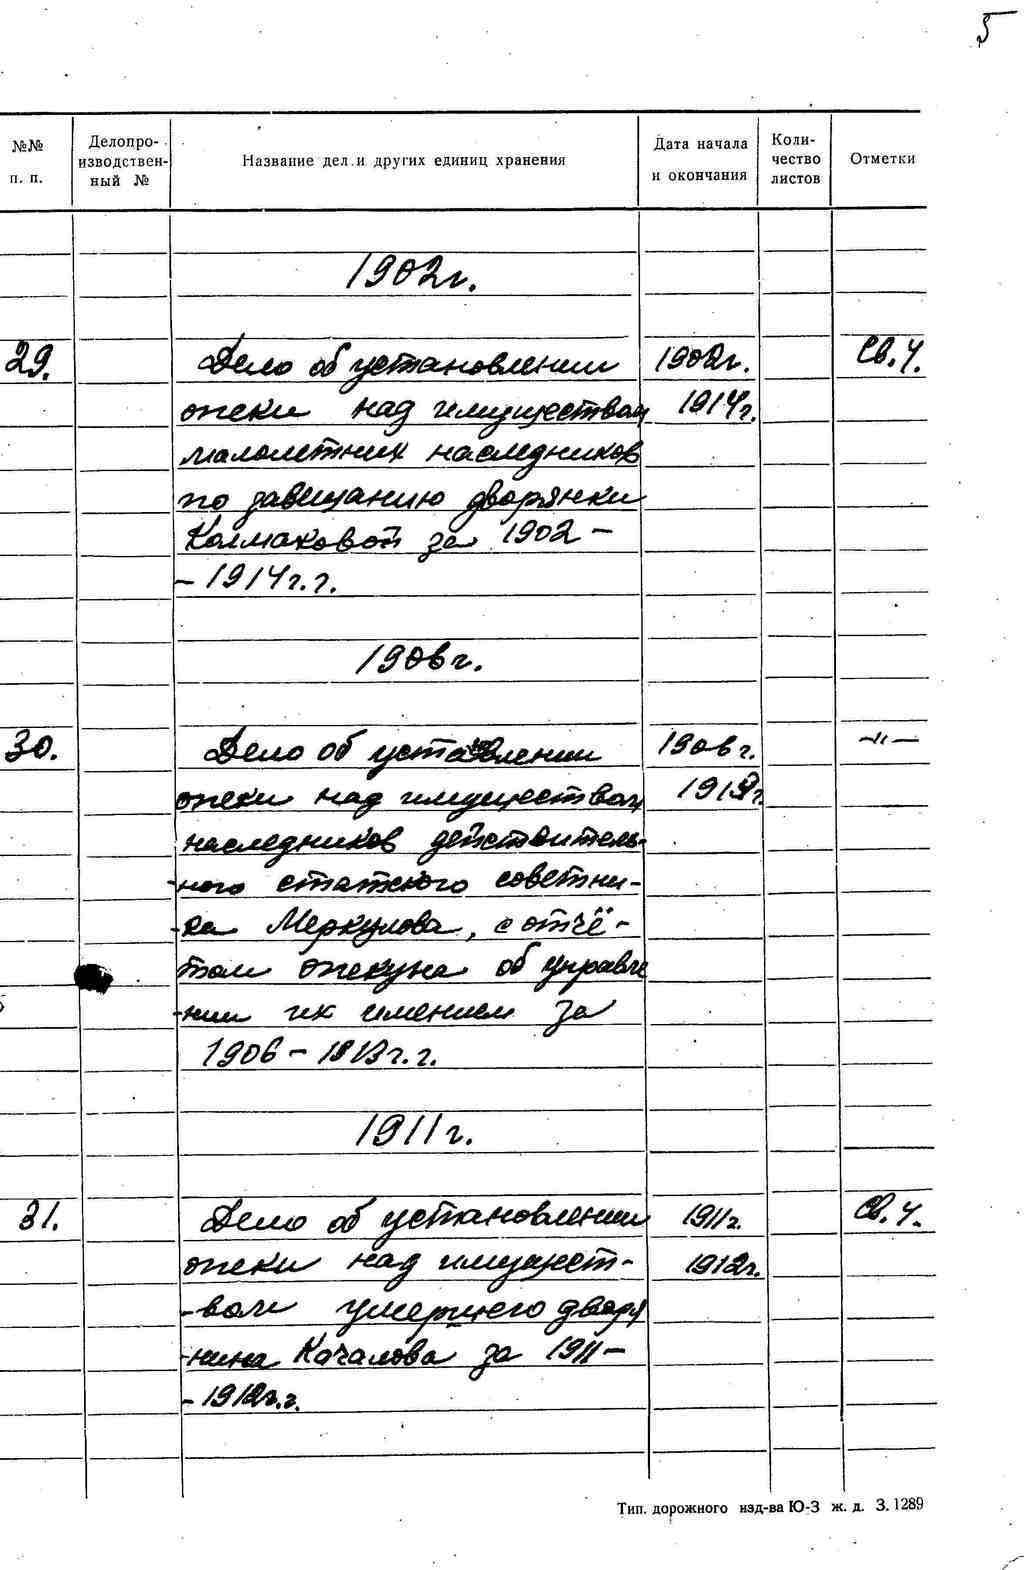 5
№№ п. п.
Делопро-изводствен-ный №
Название дел и других единиц хранения
Дата начала и окончания
Коли-чество листов
Отметки
1902г.
29. Дело об установлении 1902г. Св.4.
опеки над имуществом 1914г.
малолетних наследников
по завещанию дворянки
Колмаковой за 1902 -
- 1914г.г.
1906г.
30. Дело об установлении 1906г. -"-
опеки над имуществом
наследников действитель-
-ного статского советни-
-ка Меркулова, с отчё-
том опекуна об управле
-нии их имением за
1906 - 1913г.г.
1911г.
31. Дело об установлении 1911г. Св.4.
опеки над имущест- 1912г.
-вом умершего дворя
-нина Качалова за 1911 -
- 1912г.г.
Тип. дорожного изд-ва Ю-З ж. д. З. 1289